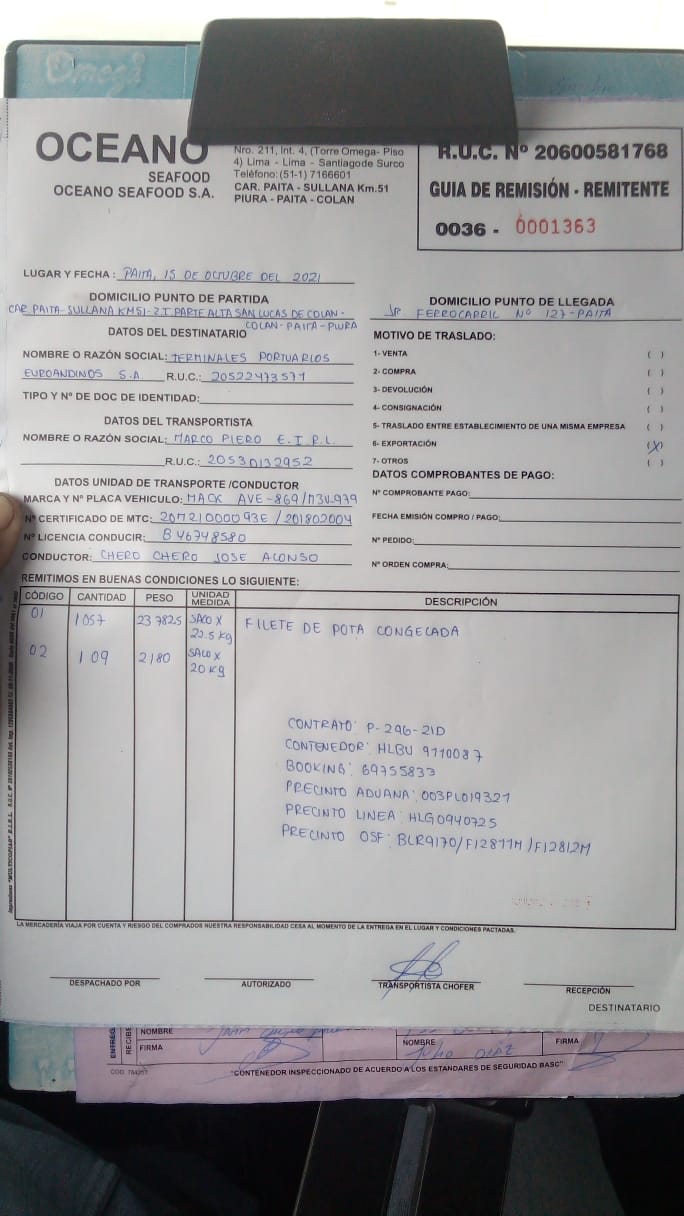 OCEANO
SEAFOOD
OCEANO SEAFOOD S.A.
Nro. 211, Int. 4, (Torre Omega- Piso
4) Lima - Lima - Santiago de Surco
Teléfono: (51-1) 7166601
CAR. PAITA - SULLANA Km.51
PIURA - PAITA - COLAN
R.U.C. Nº 20600581768
GUIA DE REMISIÓN - REMITENTE
0036 - 0001363
LUGAR Y FECHA : PAITA, 15 DE OCTUBRE DEL 2021
DOMICILIO PUNTO DE PARTIDA
CAR PAITA-SULLANA KM51-Z.I PARTE ALTA SAN LUCAS DE COLAN-
COLAN-PAITA-PIURA
DOMICILIO PUNTO DE LLEGADA
JR FERROCARRIL Nº 127-PAITA
DATOS DEL DESTINATARIO
NOMBRE O RAZÓN SOCIAL: TERMINALES PORTUARIOS
EUROANDINOS S.A R.U.C.: 20522473571
TIPO Y Nº DE DOC DE IDENTIDAD:
DATOS DEL TRANSPORTISTA
NOMBRE O RAZÓN SOCIAL: MARCO PIERO E.I.R.L.
R.U.C.: 20530132952
DATOS UNIDAD DE TRANSPORTE /CONDUCTOR
MARCA Y Nº PLACA VEHICULO: MACK AVE-869/M3V-979
Nº CERTIFICADO DE MTC: 20M21000093E / 201802004
Nº LICENCIA CONDUCIR: B 46748580
CONDUCTOR: CHERO CHERO JOSE ALONSO
MOTIVO DE TRASLADO:
1- VENTA ( )
2- COMPRA ( )
3- DEVOLUCIÓN ( )
4- CONSIGNACIÓN ( )
5- TRASLADO ENTRE ESTABLECIMIENTO DE UNA MISMA EMPRESA ( )
6- EXPORTACIÓN (X)
7- OTROS ( )
DATOS COMPROBANTES DE PAGO:
Nº COMPROBANTE PAGO:
FECHA EMISIÓN COMPRO / PAGO:
Nº PEDIDO:
Nº ORDEN COMPRA:
REMITIMOS EN BUENAS CONDICIONES LO SIGUIENTE:
CÓDIGO CANTIDAD PESO UNIDAD MEDIDA DESCRIPCIÓN
01 1057 23782.5 SACO X 22.5 Kg FILETE DE POTA CONGELADA
02 109 2180 SACO X 20 Kg
CONTRATO: P-296-21D
CONTENEDOR: HLBU 9110087
BOOKING: 69755833
PRECINTO ADUANA: 003PL019321
PRECINTO LINEA: HLG0940725
PRECINTO OSF: BLR9170/F12811M/F12812M
LA MERCADERÍA VIAJA POR CUENTA Y RIESGO DEL COMPRADOS NUESTRA RESPONSABILIDAD CESA AL MOMENTO DE LA ENTREGA EN EL LUGAR Y CONDICIONES PACTADAS.
DESPACHADO POR
AUTORIZADO
TRANSPORTISTA CHOFER
RECEPCIÓN
DESTINATARIO
NOMBRE
FIRMA
NOMBRE
Julio DIAZ
FIRMA
"CONTENEDOR INSPECCIONADO DE ACUERDO A LOS ESTANDARES DE SEGURIDAD BASC"